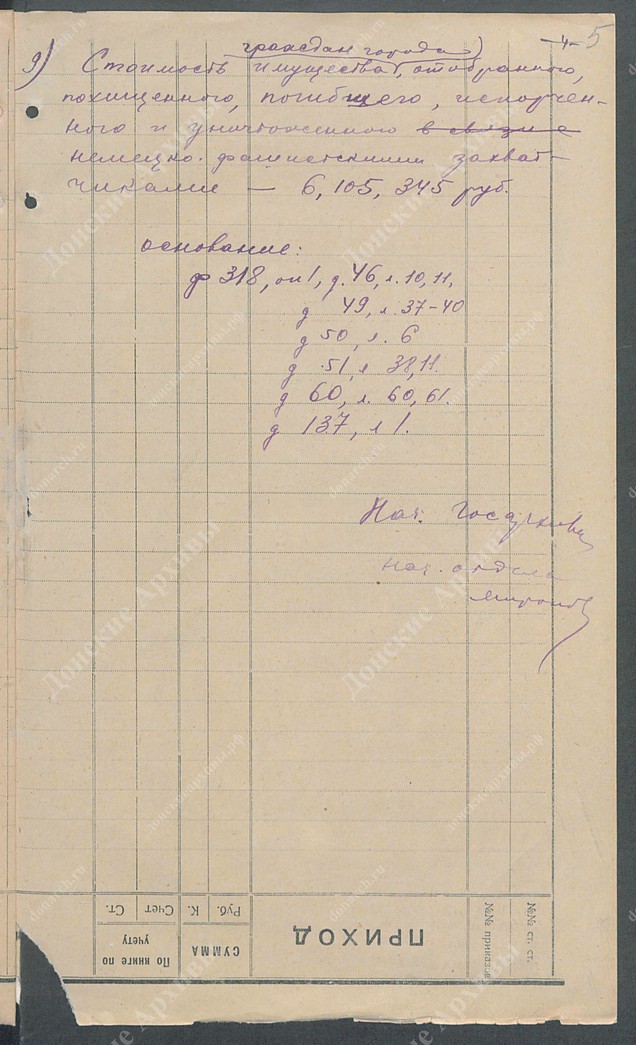 -4- 5
граждан города
9) Стоимость имущества, отобранного,
похищенного, погибшего, испорчен-
ного и уничтоженного в связи с
немецко-фашистскими захват-
чиками — 6,105,345 руб.
основание:
ф 318, оп 1, д. 46, л. 10, 11,
д 49, л. 37-40
д 50, л. 6
д 51, л 38, 11.
д 60, л. 60, 61.
д 137, л 1.
Нач. Госархива
нач. отдела
По книге по учету
Счет Ст.
СУММА
Руб. К.
ПРИХОД
№№ приказов
№№ ст. ст.
Донские Архивы
donarch.ru
донскиеархивы.рф